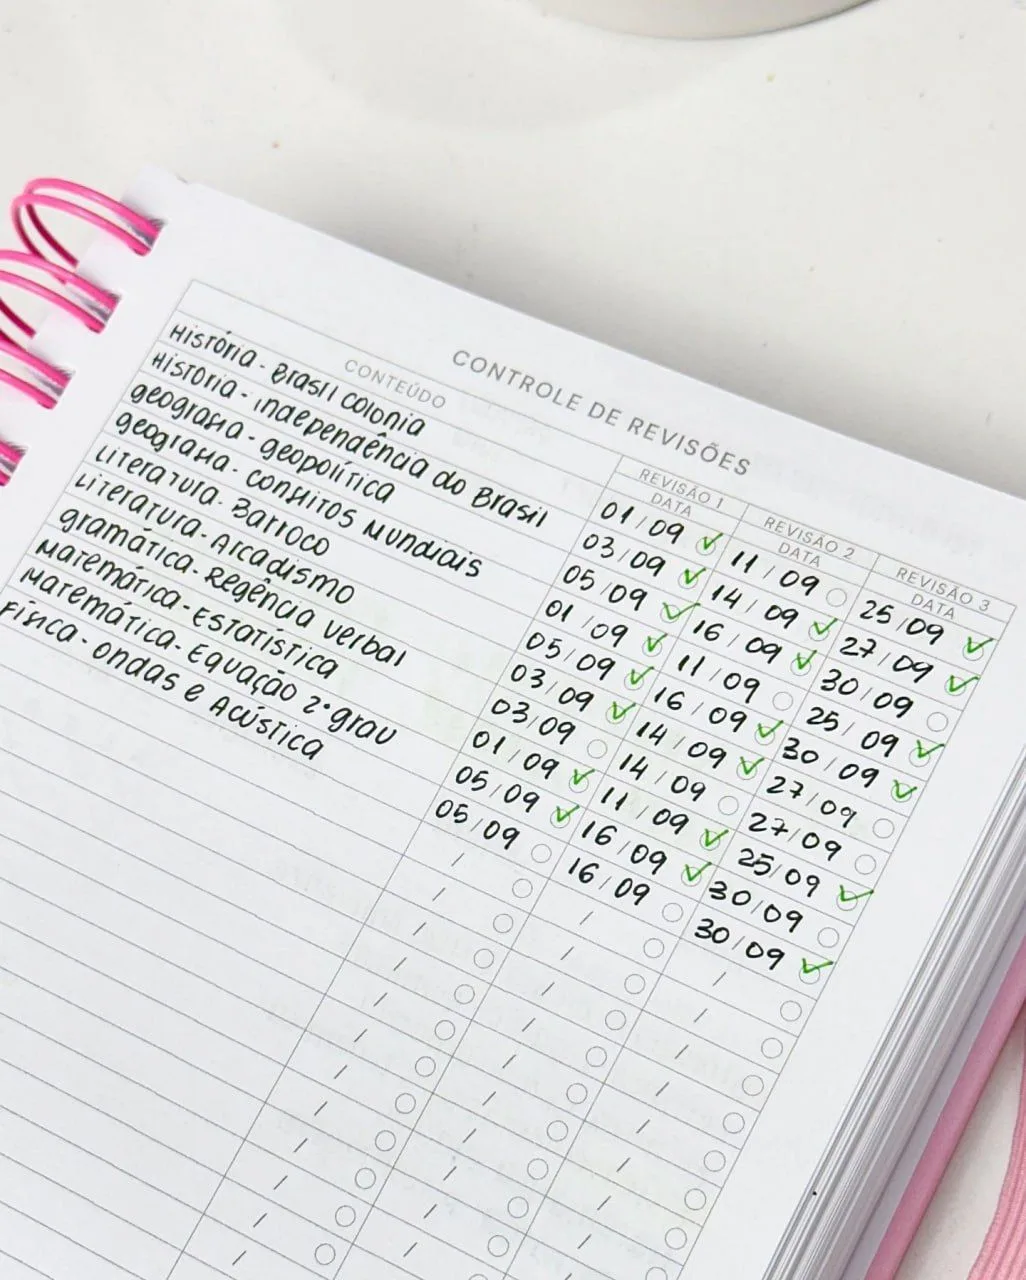 CONTROLE DE REVISÕES
CONTEÚDO REVISÃO 1 REVISÃO 2 REVISÃO 3
DATA DATA DATA
História - Brasil Colonia 01/09 ✓ 11/09 25/09 ✓
História - independência do Brasil 03/09 ✓ 14/09 ✓ 27/09 ✓
geografia - geopolítica 05/09 ✓ 16/09 ✓ 30/09
geografia - conflitos Mundiais 01/09 ✓ 11/09 25/09 ✓
Literatura - Barroco 05/09 ✓ 16/09 ✓ 30/09 ✓
Literatura - Arcadismo 03/09 ✓ 14/09 ✓ 27/09
gramática - Regência verbal 03/09 14/09 27/09
Matemática - Estatística 01/09 ✓ 11/09 ✓ 25/09 ✓
Matemática - Equação 2º grau 05/09 ✓ 16/09 ✓ 30/09
Física - ondas e Acústica 05/09 16/09 30/09 ✓